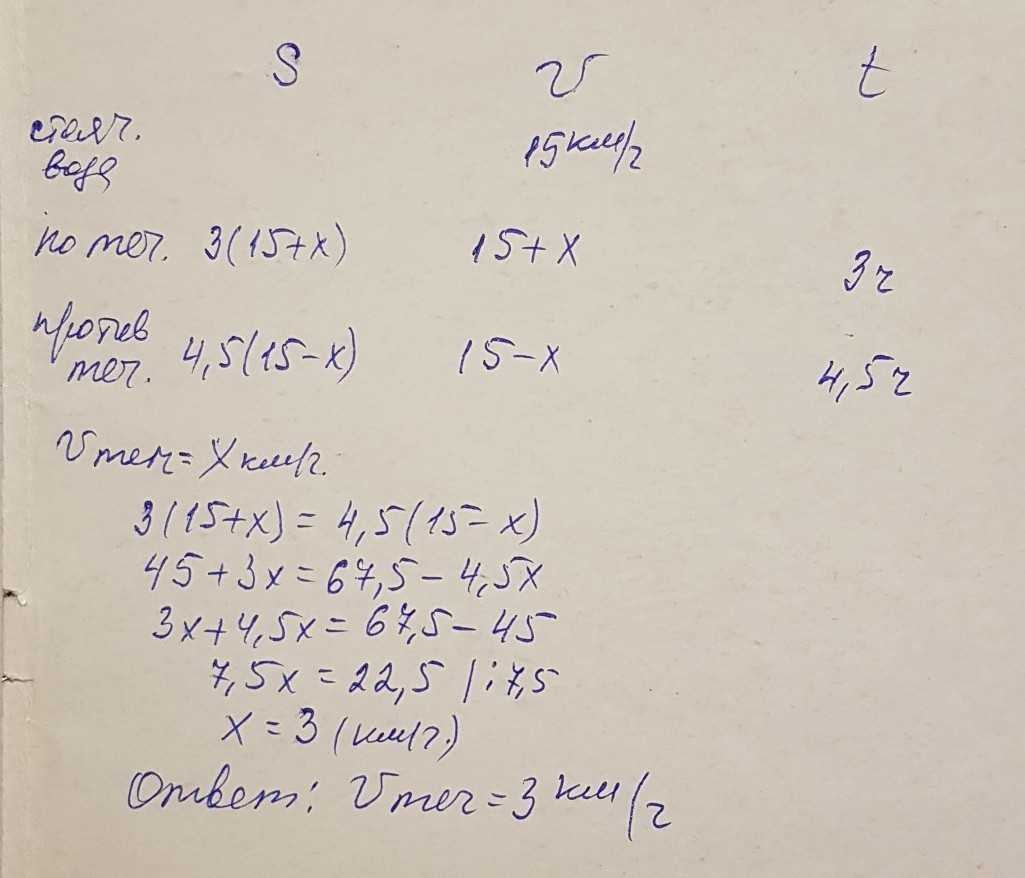 S V t
стояч.
вода 15 км/ч
по теч. 3(15+х) 15+х 3ч
против
теч. 4,5(15-х) 15-х 4,5ч
Vтеч= Х км/ч.
3(15+х)= 4,5(15-х)
45+3х=67,5-4,5х
3х+4,5х=67,5-45
7,5х=22,5 |:7,5
х=3 (км/ч.)
Ответ: Vтеч=3 км/ч